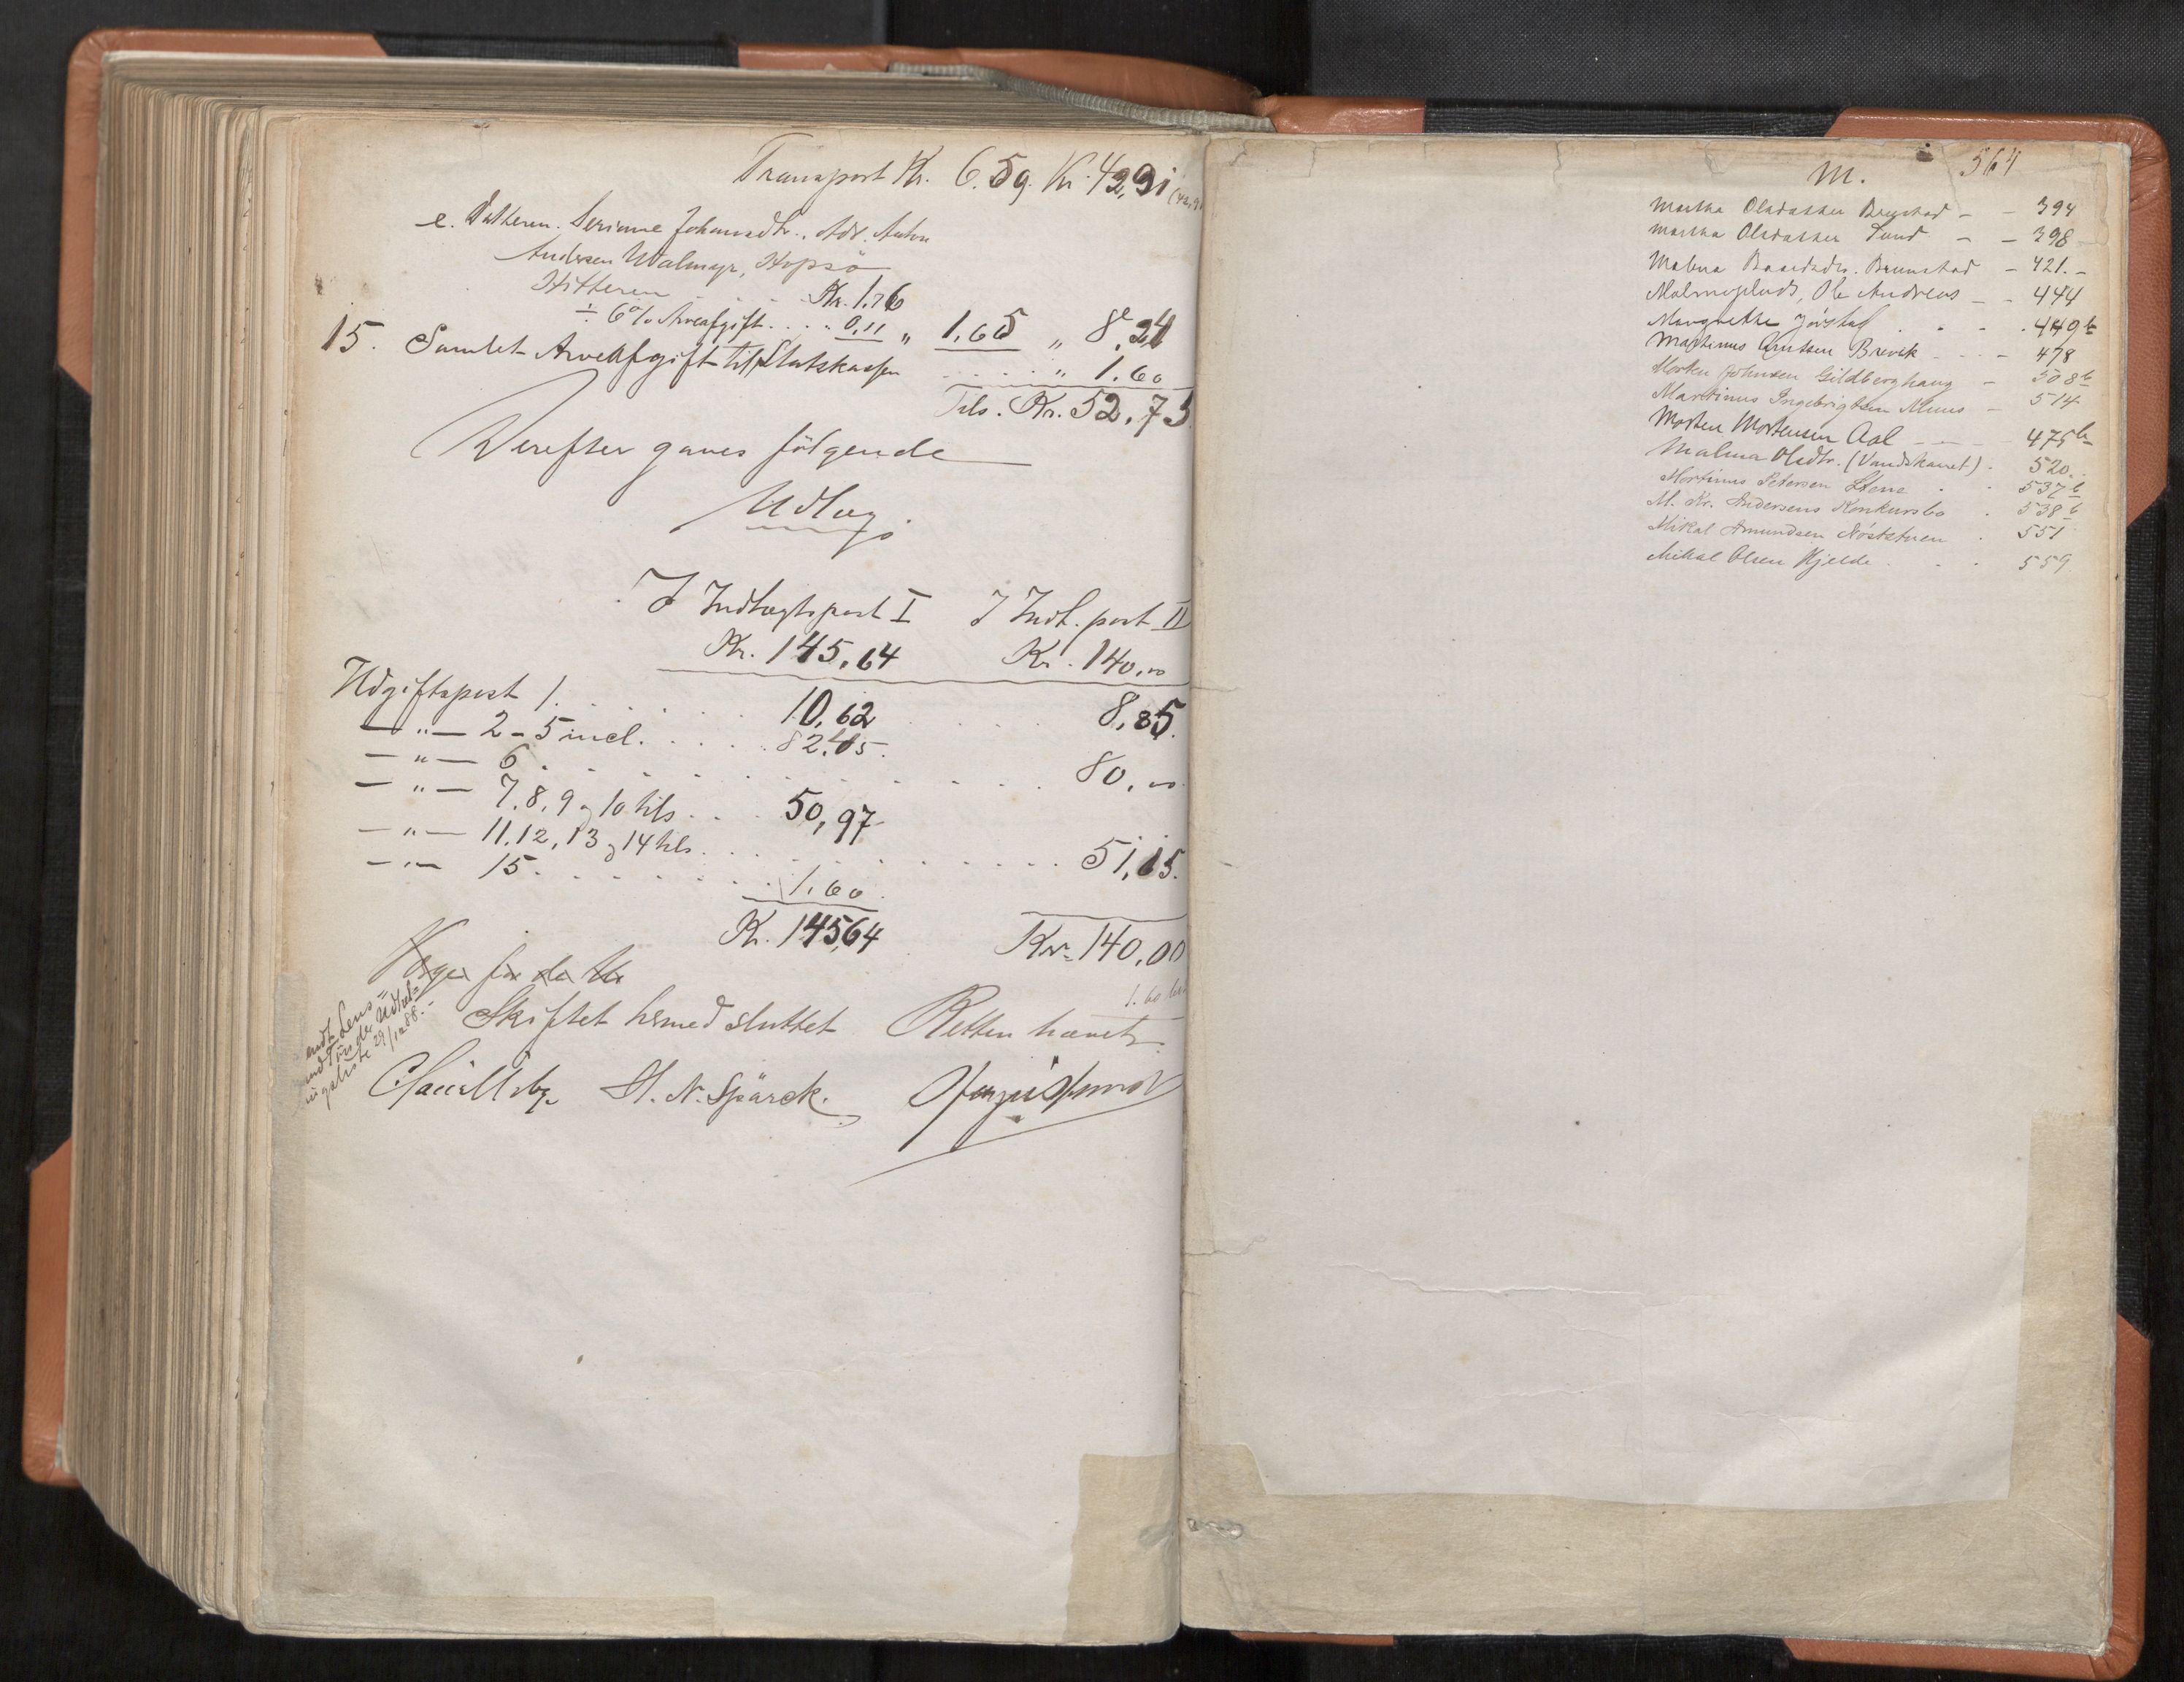 Transport Kr. 6.59. Kr. 42,91
e. Datteren Serianne Johansdtr., Adr. Anton
Andersen Ulvalmyr, Hopsö
Hitteren . . . . Kr. 1.76
÷ 6% Arveafgift . . . . 0,11 " 1.65 " 8.24
15. Samlet Arveafgift til Statskassen . . . . . " 1.60
Tils. Kr. 52,75
Derefter gaves følgende
Udlæg.
I Indtægtspost I I Indt. post II
Kr. 145,64 Kr. 140,00
Udgiftspost 1. . . . . . 10,62 . . . . 8,85.
— " — 2-5 incl. . . . . 82.45.
— " — 6 . . . . . . . . . 80,00
— " — 7,8,9 og 10 tils . . . 50,97
— " — 11,12,13 og 14 tils. . . . . . . . 51,15.
— " — 15. . . . . . . 1.60.
Kr. 145,64 Kr. 140,00
Værger for de
Skiftet hermed sluttet Retten hævet.
H. N. Spärck.
M. 564
Martha Olsdatter Bragstad — — 394
Martha Olsdatter Sund — — 398
Malena Baardsdtr. Brunstad — 421.—
Malmoplads, Ole Andreas — — 444
Margrethe Jørstad . . . . 449b
Martinus Arntsen Brevik — . . — 478
Morten Johnsen Gildberghaug — 508b
Martinus Ingebrigtsen Muus — 514
Morten Mortensen Aal — — — 475b
Malena Olsdtr. (Vandskarvet) . 520.
Martinus Petersen Stene . . 537b
M. Kr. Andersens Konkursbo . 538b
Mikal Amundsen Nøststuen . 551
Mikal Olsen Hjelde . . . 559